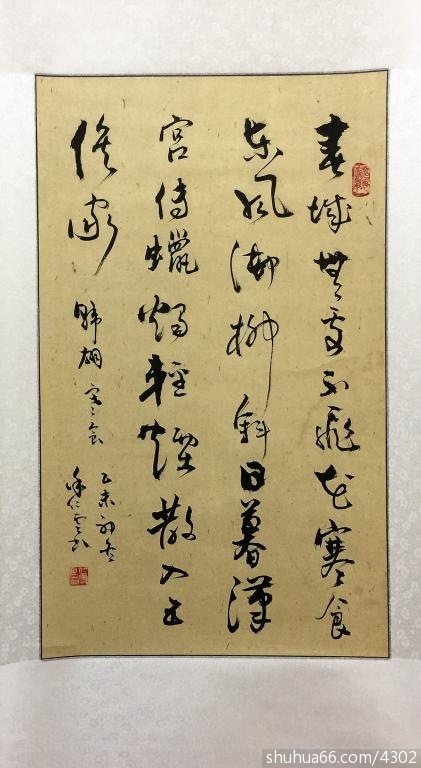 春城無處不飛花寒食
東風御柳斜日暮漢
宮傳蠟燭輕煙散入五
侯家 韓翃寒食
乙未初冬
shuhua66.com/4302